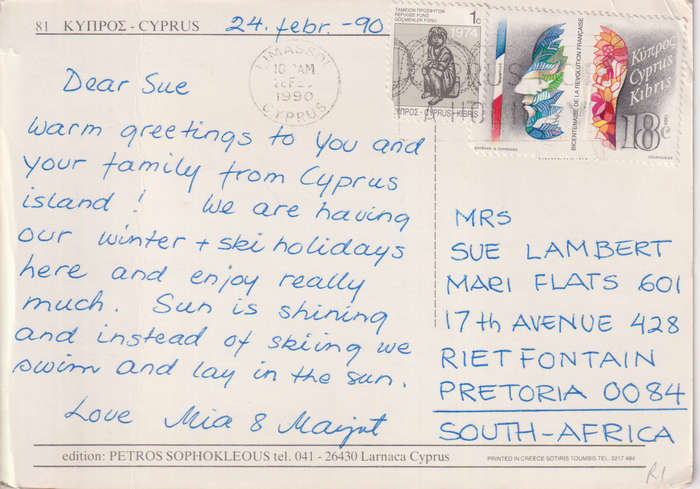 81 ΚΥΠΡΟΣ - CYPRUS
24. febr. -90
Dear Sue
Warm greetings to You and
your family from Cyprus
island! We are having
our winter + ski holidays
here and enjoy really
much. Sun is shining
and instead of skiing we
swim and lay in the sun.
Love Mia &
LIMASSOL
AM
1990
CYPRUS
ΤΑΜΕΙΟΝ ΠΡΟΣΦΥΓΩΝ
REFUGEE FUND
GÖÇMENLER FONU
1c
1974
ΚΥΠΡΟΣ-CYPRUS-KIBRIS
BICENTENAIRE DE LA REVOLUTION FRANÇAISE
Κύπρος
Cyprus
Kıbrıs
18c
MRS
SUE LAMBERT
MARI FLATS 601
17th AVENUE 428
RIETFONTAIN
PRETORIA 0084
SOUTH-AFRICA
edition: PETROS SOPHOKLEOUS tel. 041 - 26430 Larnaca Cyprus
PRINTED IN GREECE SOTIRIS TOUMBIS TEL. 3217 484
R1